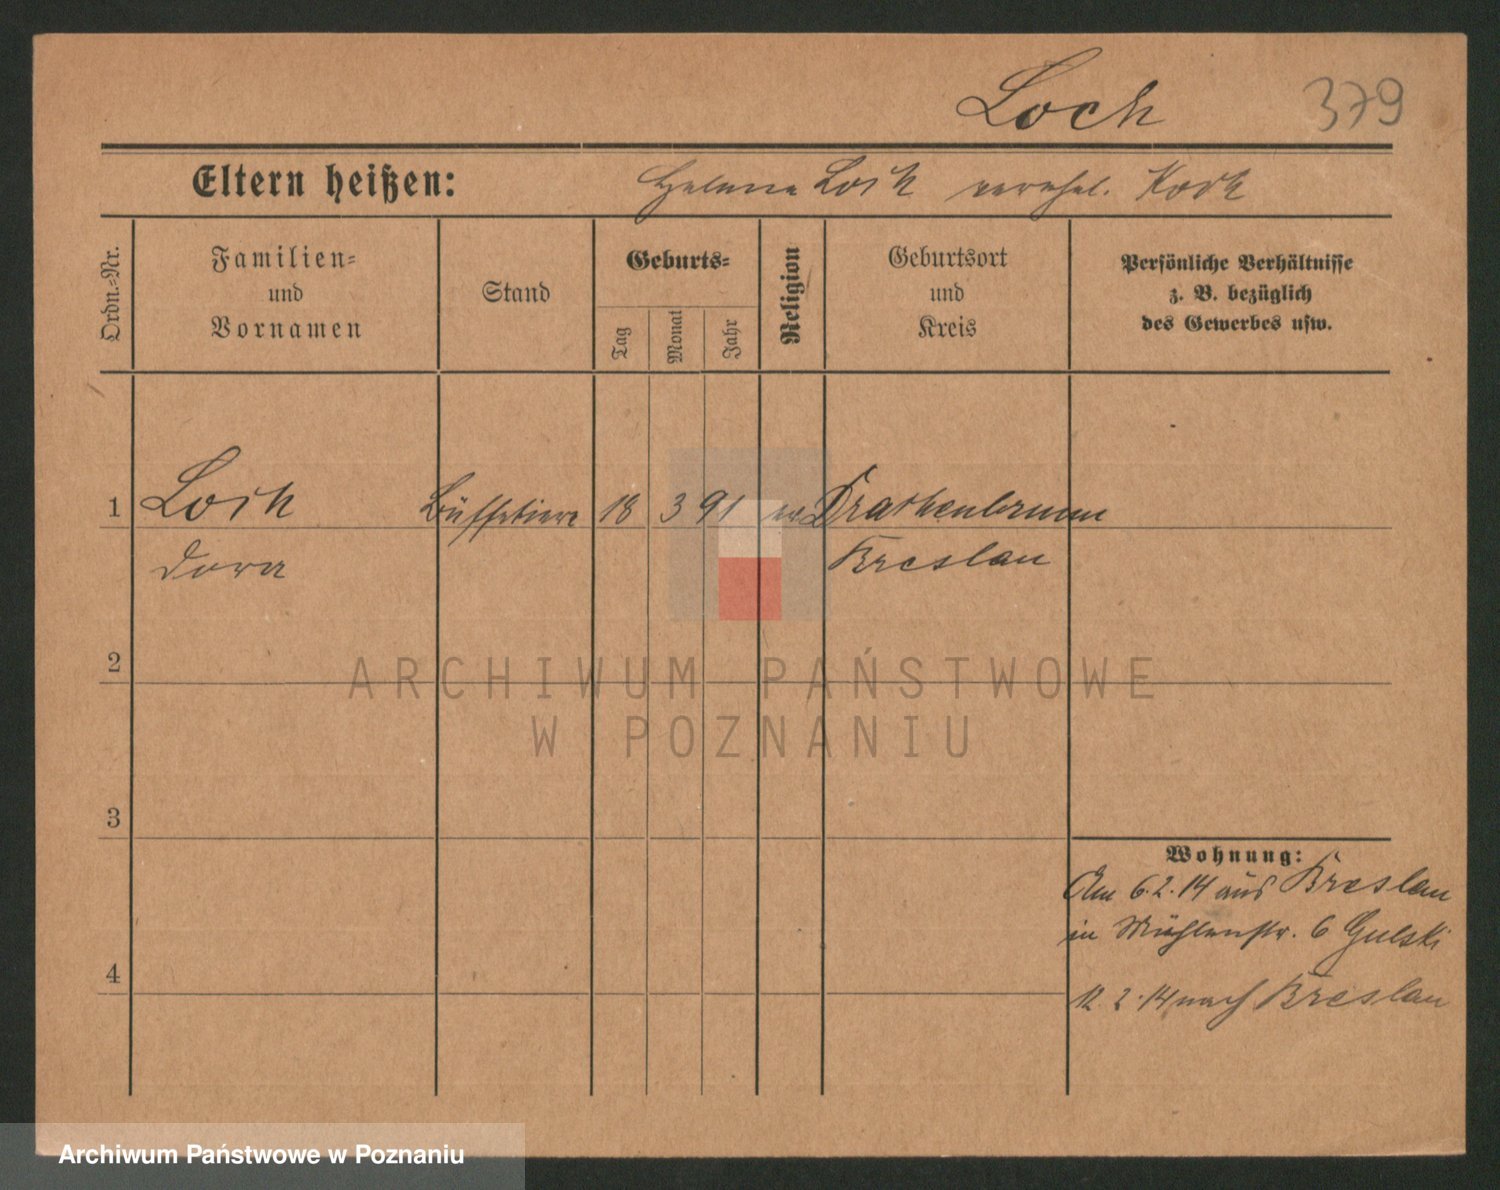 Loch 379
Eltern heißen: Helene Loch verehel. Koch
Ordn.-Nr.
Familien-
und
Vornamen
Stand
Geburts-
Tag
Monat
Jahr
Religion
Geburtsort
und
Kreis
Persönliche Verhältnisse
z. B. bezüglich
des Gewerbes usw.
1 Loch Büffetiere 18 3 91 ev Drachenbrunn
Dora Breslau
2
ARCHIWUM PAŃSTWOWE
W POZNANIU
3
Wohnung:
Am 6.2.14 aus Breslau
in Mühlenstr. 6 Gulski
4
12.2.14 nach Breslau
Archiwum Państwowe w Poznaniu